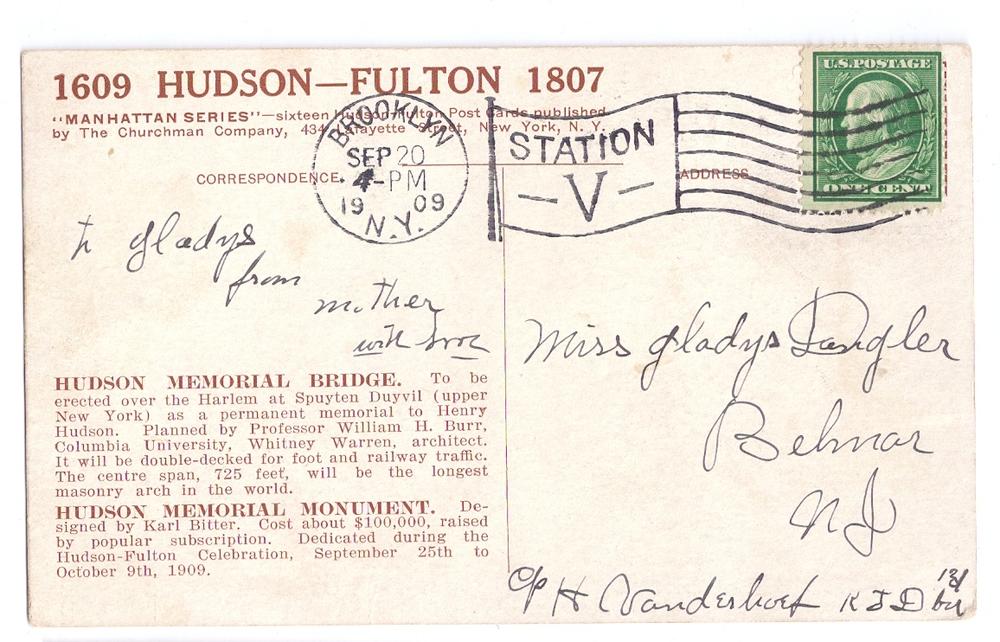 1609 HUDSON—FULTON 1807
"MANHATTAN SERIES"—sixteen Hudson-Fulton Post Cards published
by The Churchman Company, 434 Lafayette Street, New York, N. Y.
BROOKLYN
SEP 20
4-PM
1909
N.Y.
STATION
-V-
U.S. POSTAGE
ONE CENT
CORRESPONDENCE
ADDRESS
to gladys
from
mother
with love
HUDSON MEMORIAL BRIDGE. To be
erected over the Harlem at Spuyten Duyvil (upper
New York) as a permanent memorial to Henry
Hudson. Planned by Professor William H. Burr,
Columbia University, Whitney Warren, architect.
It will be double-decked for foot and railway traffic.
The centre span, 725 feet, will be the longest
masonry arch in the world.
HUDSON MEMORIAL MONUMENT. De-
signed by Karl Bitter. Cost about $100,000, raised
by popular subscription. Dedicated during the
Hudson-Fulton Celebration, September 25th to
October 9th, 1909.
Miss gladys Langler
Belmar
NJ
C/o H Vanderhoef